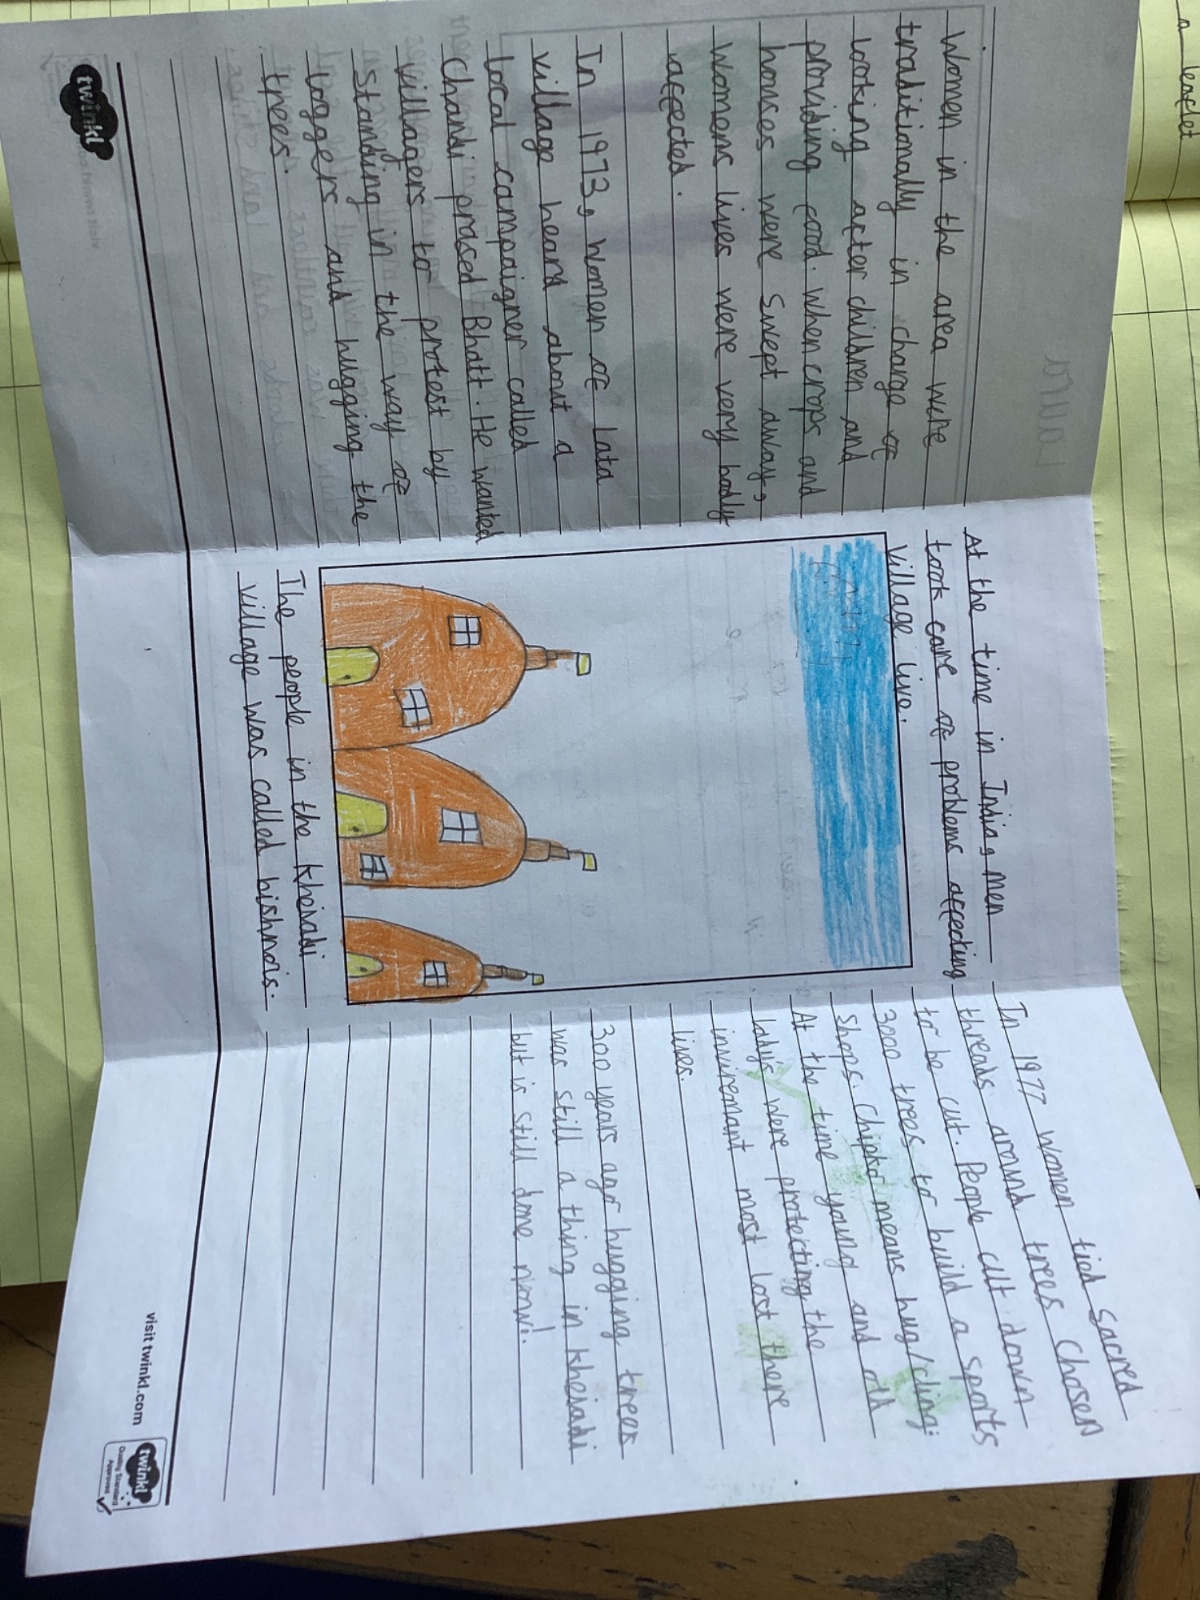 Women in the area were
traditionally in charge of
looking after children and
providing food. when crops and
houses were swept away,
womens lives were very badly
affected.
In 1973, Women of Lata
village heard about a
local campaigner called
Chandi prased Bhatt. He wanted
villagers to protest by
standing in the way of
loggers and hugging the
trees.
twinkl
At the time in India, men
took care of problems affecting
village live.
The people in the kheiabi
village was called bishnois.
In 1977 women tied sacred
threads around trees chosen
to be cut. People cut down
3000 trees to build a sports
shops Chipko means hug/cling.
At the time young and old
lady's were protecting the
inviremant most lost there
lives.
300 years ago hugging trees
was still a thing in kheiabi
but is still done now!.
visit twinkl.com
twinkl
Quality Standard
Approved
a leaflet